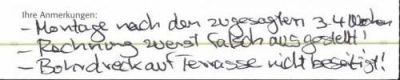 Ihre Anmerkungen:
- Montage nach den zugesagten 3-4 Wochen
- Rechnung zuerst falsch ausgestellt!
- Bohrdreck auf Terrasse nicht beseitigt!